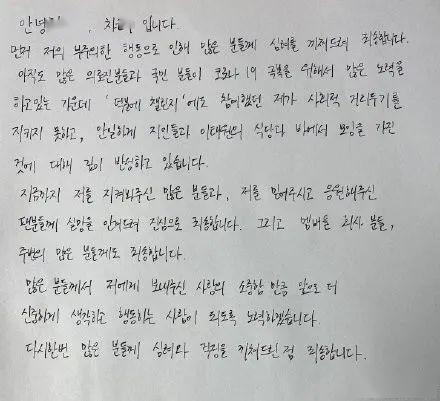 안녕 , 차 입니다.
먼저 저의 부주의한 행동으로 인해 많은 분들께 심려를 끼쳐드려 죄송합니다.
아직도 많은 의료진분들과 국민 분들이 코로나19 극복을 위해서 많은 노력을
하고있는 가운데 '덕분에 챌린지'에도 참여했던 제가 사회적 거리두기를
지키지 못하고, 안일하게 지인들과 이태원의 식당과 바에서 모임을 가진
것에 대해 깊이 반성하고 있습니다.
지금까지 저를 지켜봐주신 많은 분들과, 저를 믿어주시고 응원해주신
팬분들께 실망을 안겨드려 진심으로 죄송합니다. 그리고 멤버들 회사 분들,
주변의 많은 분들께도 죄송합니다.
많은 분들께서 저에게 보내주신 사랑의 소중함 만큼 앞으로 더
신중하게 생각하고 행동하는 사람이 되도록 노력하겠습니다.
다시한번 많은 분들께 심려와 걱정을 끼쳐드린 점 죄송합니다.